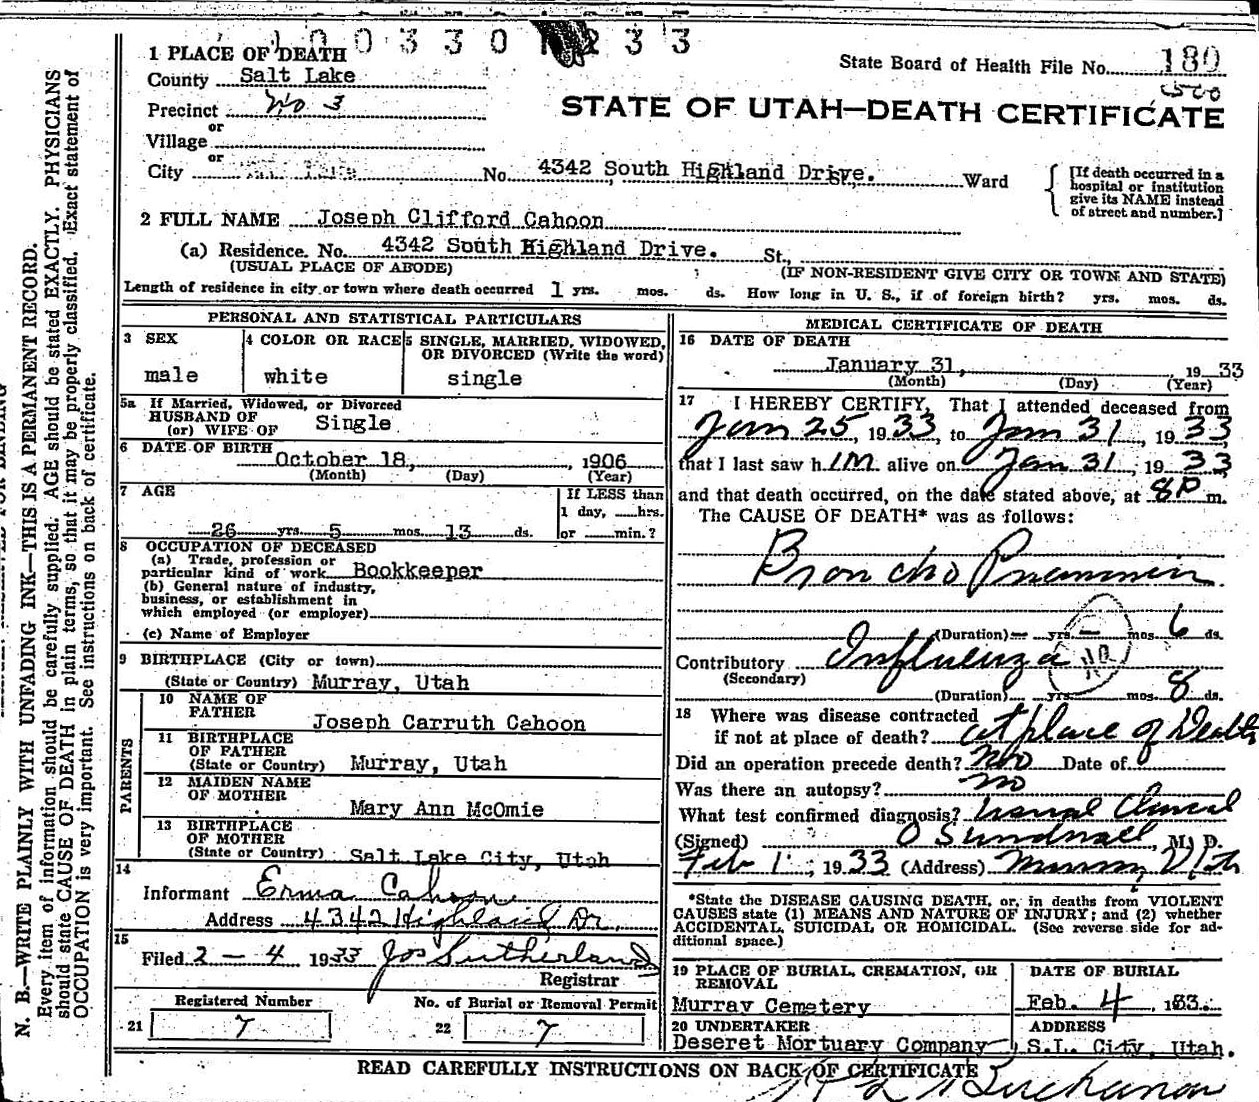 1 0 0 3 3 0 1 2 3 3
1 PLACE OF DEATH
State Board of Health File No. 180
County Salt Lake
STATE OF UTAH—DEATH CERTIFICATE
Precinct No 3
or
Village
or
City No. 4342 South Highland Drive. Ward
[If death occurred in a hospital or institution give its NAME instead of street and number.]
2 FULL NAME Joseph Clifford Cahoon
(a) Residence. No. 4342 South Highland Drive. St.,
(USUAL PLACE OF ABODE) (IF NON-RESIDENT GIVE CITY OR TOWN AND STATE)
Length of residence in city or town where death occurred 1 yrs. mos. ds. How long in U. S., if of foreign birth? yrs. mos. ds.
PERSONAL AND STATISTICAL PARTICULARS
3 SEX
male
4 COLOR OR RACE
white
5 SINGLE, MARRIED, WIDOWED, OR DIVORCED (Write the word)
single
5a If Married, Widowed, or Divorced
HUSBAND OF
(or) WIFE OF Single
6 DATE OF BIRTH
October 18, 1906
(Month) (Day) (Year)
7 AGE
26 yrs. 5 mos. 13 ds.
If LESS than
1 day, hrs.
or min.?
8 OCCUPATION OF DECEASED
(a) Trade, profession or
particular kind of work Bookkeeper
(b) General nature of industry,
business, or establishment in
which employed (or employer)
(c) Name of Employer
9 BIRTHPLACE (City or town)
(State or Country) Murray, Utah
PARENTS
10 NAME OF
FATHER
Joseph Carruth Cahoon
11 BIRTHPLACE
OF FATHER
(State or Country) Murray, Utah
12 MAIDEN NAME
OF MOTHER
Mary Ann McOmie
13 BIRTHPLACE
OF MOTHER
(State or Country) Salt Lake City, Utah
14
Informant Erma Cahoon
Address 4342 Highland Dr.
15
Filed 2 - 4 1933 Jos Sutherland
Registrar
Registered Number
21 7
No. of Burial or Removal Permit
22 7
MEDICAL CERTIFICATE OF DEATH
16 DATE OF DEATH
January 31, 1933
(Month) (Day) (Year)
17 I HEREBY CERTIFY, That I attended deceased from
Jan 25, 1933, to Jan 31, 1933
that I last saw h im alive on Jan 31, 1933
and that death occurred, on the date stated above, at 8P m.
The CAUSE OF DEATH* was as follows:
Broncho Pneumonia
(Duration) — yrs. — mos. 6 ds.
Contributory Influenza
(Secondary)
(Duration) yrs. mos. 8 ds.
18 Where was disease contracted
if not at place of death? at place of Death
Did an operation precede death? No Date of
Was there an autopsy? no
What test confirmed diagnosis? Usual Clinical
(Signed) O Sundwall, M. D.
Feb 1, 1933 (Address) Murray Utah
*State the DISEASE CAUSING DEATH, or, in deaths from VIOLENT
CAUSES state (1) MEANS AND NATURE OF INJURY; and (2) whether
ACCIDENTAL, SUICIDAL OR HOMICIDAL. (See reverse side for ad-
ditional space.)
19 PLACE OF BURIAL, CREMATION, OR
REMOVAL
Murray Cemetery
DATE OF BURIAL
Feb. 4, 1933.
20 UNDERTAKER
Deseret Mortuary Company
ADDRESS
S.L. City, Utah.
READ CAREFULLY INSTRUCTIONS ON BACK OF CERTIFICATE
Buchanan
N. B.—WRITE PLAINLY WITH UNFADING INK—THIS IS A PERMANENT RECORD.
Every item of information should be carefully supplied. AGE should be stated EXACTLY. PHYSICIANS
should state CAUSE OF DEATH in plain terms, so that it may be properly classified. Exact statement of
OCCUPATION is very important. See instructions on back of certificate.